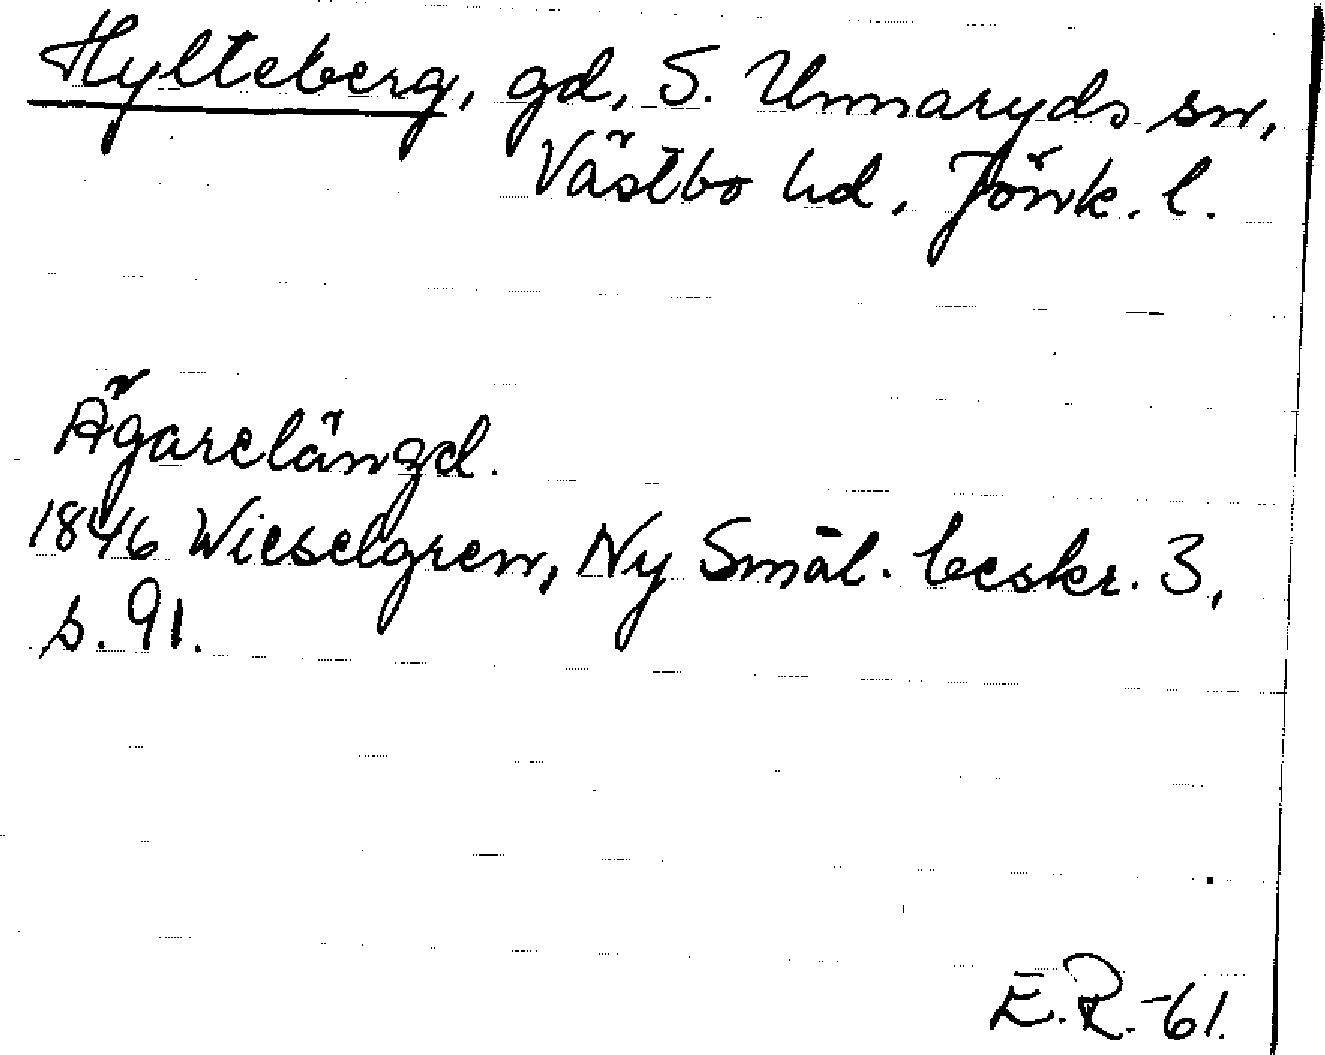 Hylteberg, gd, S. Unnaryds sn,
Västbo hd, Jönk. l.
Ägarelängd.
1846 Wieselgren, Ny Smål. beskr. 3,
s. 91.
E.R.-61.